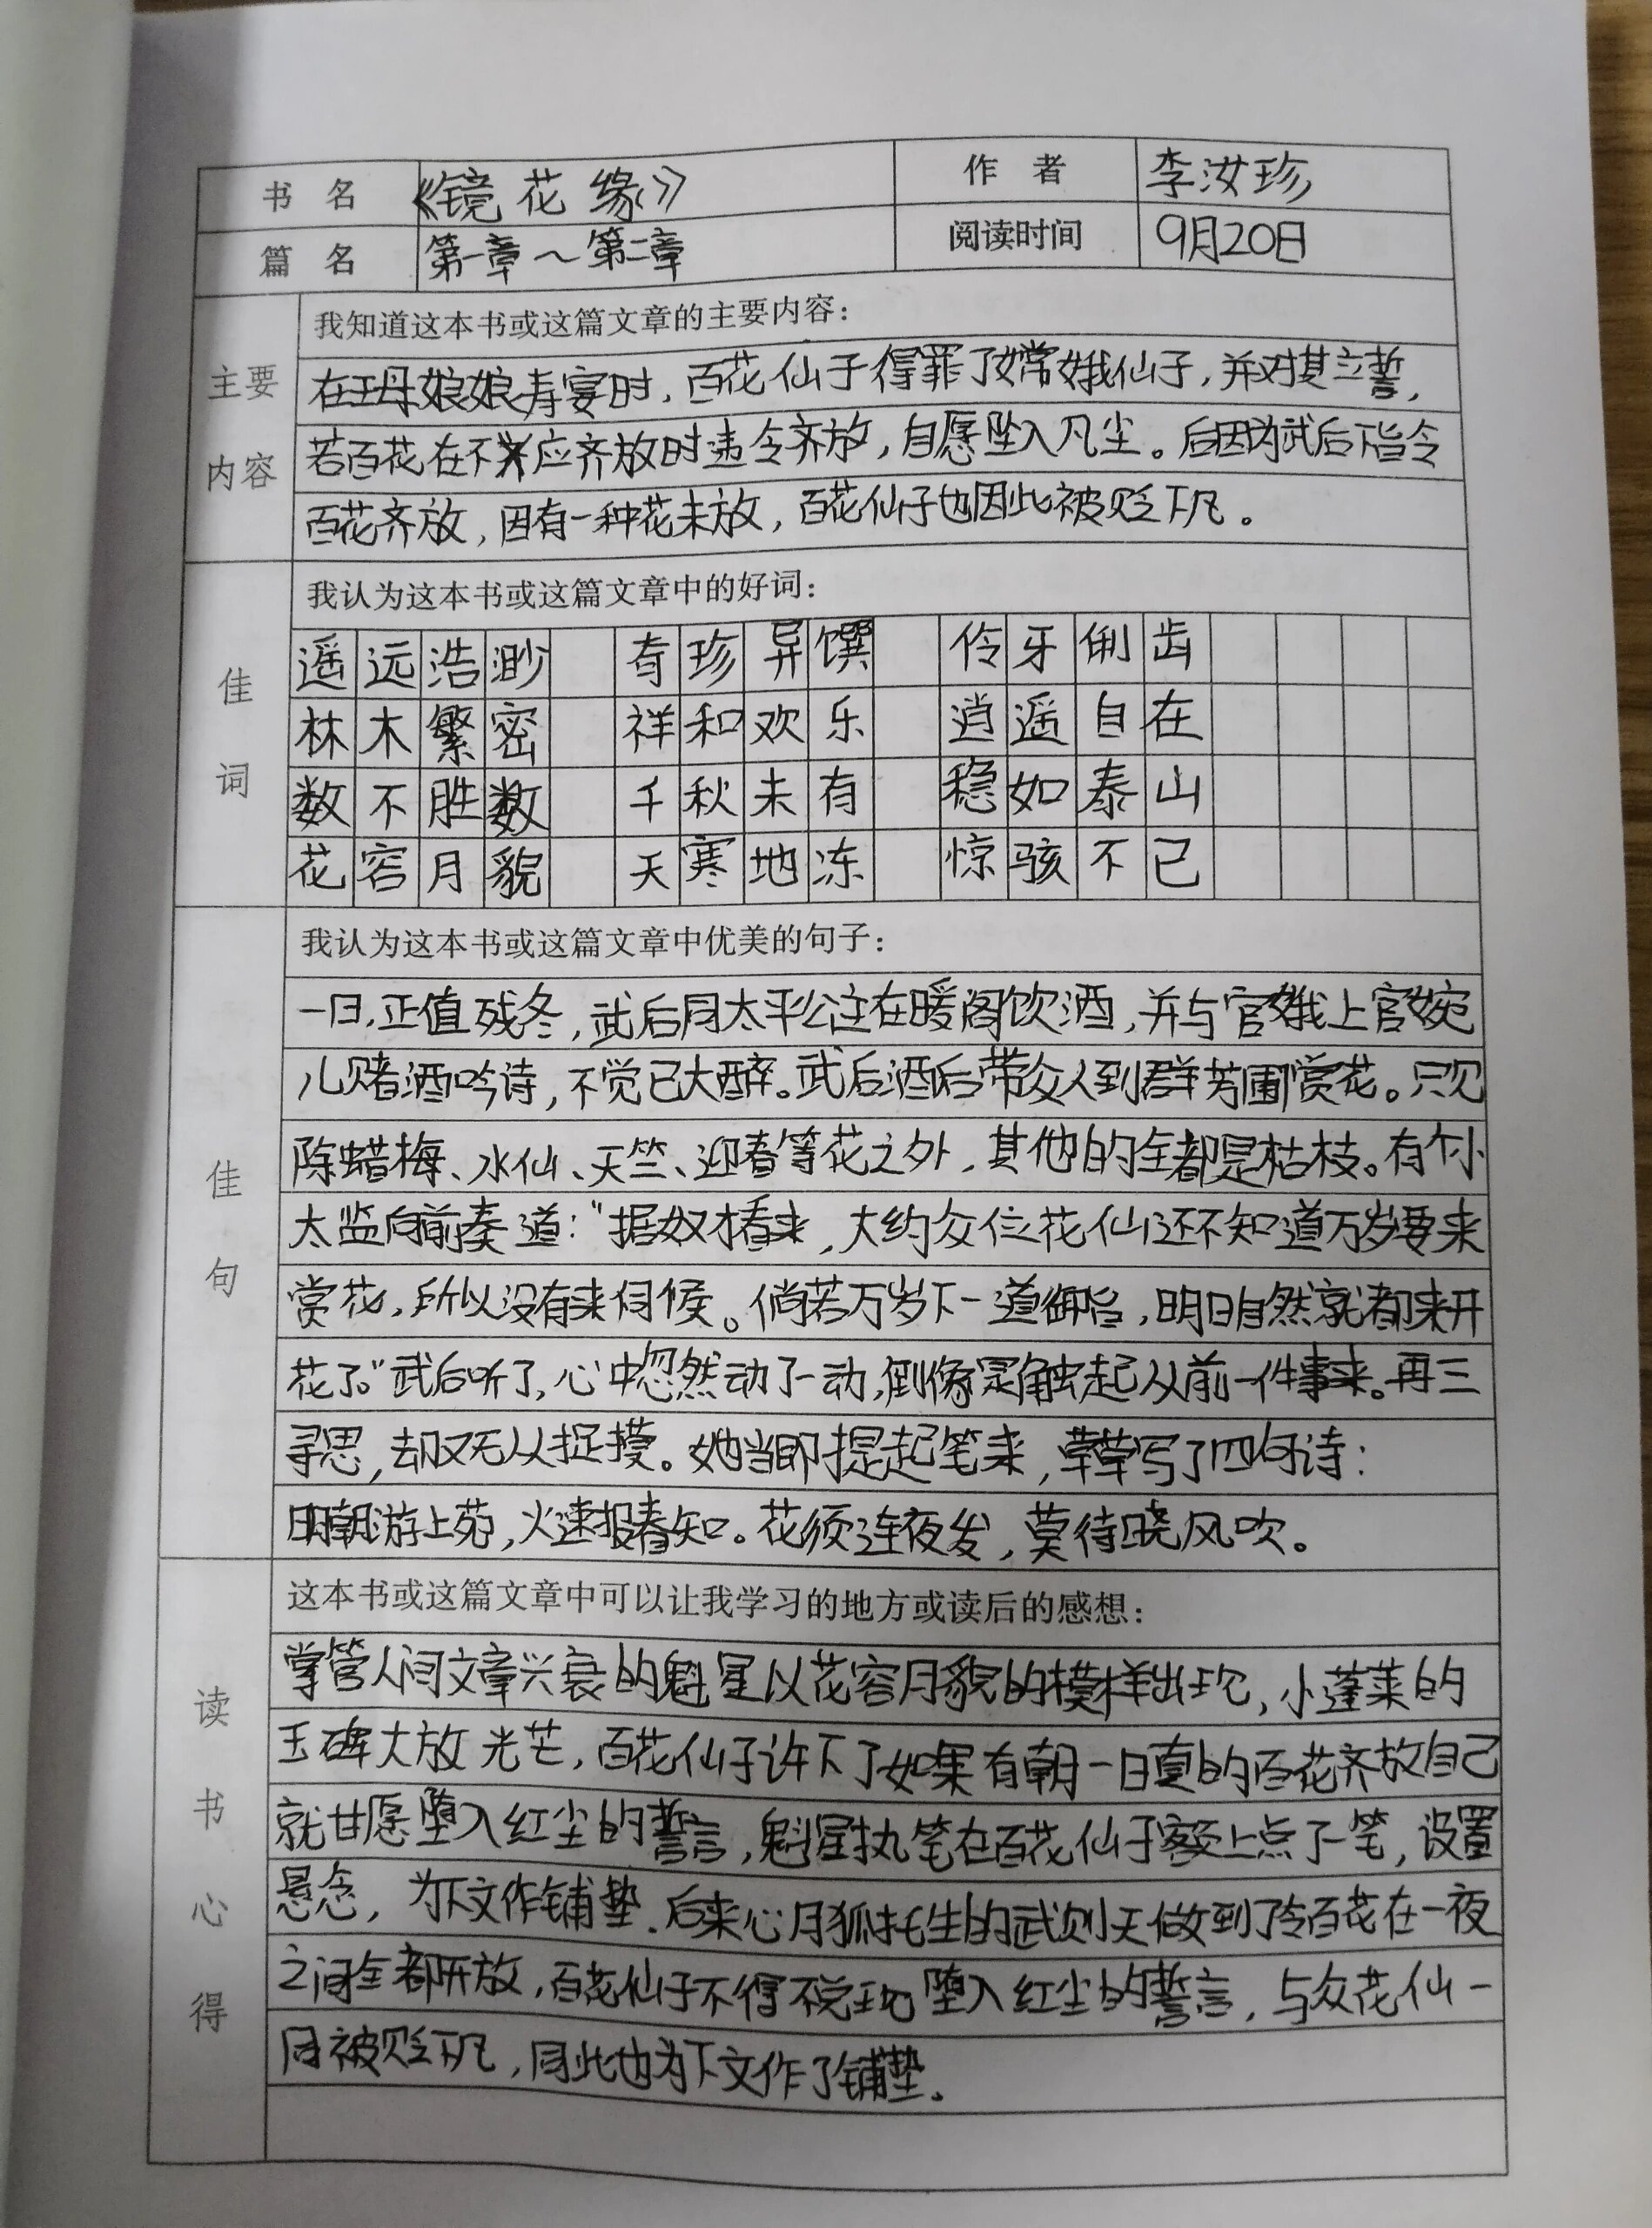 书 名 《镜花缘》 作 者 李汝珍
篇 名 第一章~第二章 阅读时间 9月20日
主要内容
我知道这本书或这篇文章的主要内容:
在王母娘娘寿宴时,百花仙子得罪了嫦娥仙子,并对其立誓,
若百花在不应齐放时违令齐放,自愿坠入凡尘。后因为武后下旨令
百花齐放,因有一种花未放,百花仙子也因此被贬下凡。
佳词
我认为这本书或这篇文章中的好词:
遥远浩渺 奇珍异馔 伶牙俐齿
林木繁密 祥和欢乐 逍遥自在
数不胜数 千秋未有 稳如泰山
花容月貌 天寒地冻 惊骇不已
佳句
我认为这本书或这篇文章中优美的句子:
一日,正值残冬,武后同太平公主在暖阁饮酒,并与宫娥上官婉
儿赌酒吟诗,不觉已大醉。武后酒后带众人到群芳圃赏花。只见
除蜡梅、水仙、天竺、迎春等花之外,其他的全都是枯枝。有个小
太监向前奏道:“据奴才看来,大约众位花仙还不知道万岁要来
赏花,所以没有来伺候。倘若万岁下一道御旨,明日自然就都来开
花了。”武后听了,心中忽然动了一动,倒像是触起从前一件事来。再三
寻思,却又无从捉摸。她当即提起笔来,草草写了四句诗:
明朝游上苑,火速报春知。花须连夜发,莫待晓风吹。
读书心得
这本书或这篇文章中可以让我学习的地方或读后的感想:
掌管人间文章兴衰的魁星以花容月貌的模样出现,小蓬莱的
玉碑大放光芒,百花仙子许下了如果有朝一日真的百花齐放自己
就甘愿堕入红尘的誓言,魁星执笔在百花仙子额上点了一笔,设置
悬念,为下文作铺垫.后来心月狐托生的武则天做到了令百花在一夜
之间全都开放,百花仙子不得不兑现堕入红尘的誓言,与众花仙一
同被贬下凡,同此也为下文作了铺垫.